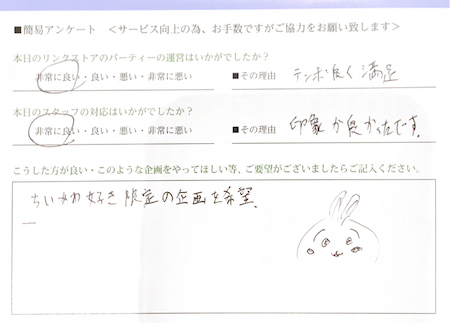 ■簡易アンケート ＜サービス向上の為、お手数ですがご協力をお願い致します＞
本日のリンクストアのパーティーの運営はいかがでしたか？
非常に良い・良い・悪い・非常に悪い ■その理由 テンポ良く満足
本日のスタッフの対応はいかがでしたか？
非常に良い・良い・悪い・非常に悪い ■その理由 印象が良かったです。
こうした方が良い・このような企画をやってほしい等、ご要望がございましたらご記入ください。
ちいかわ好き限定の企画を希望。